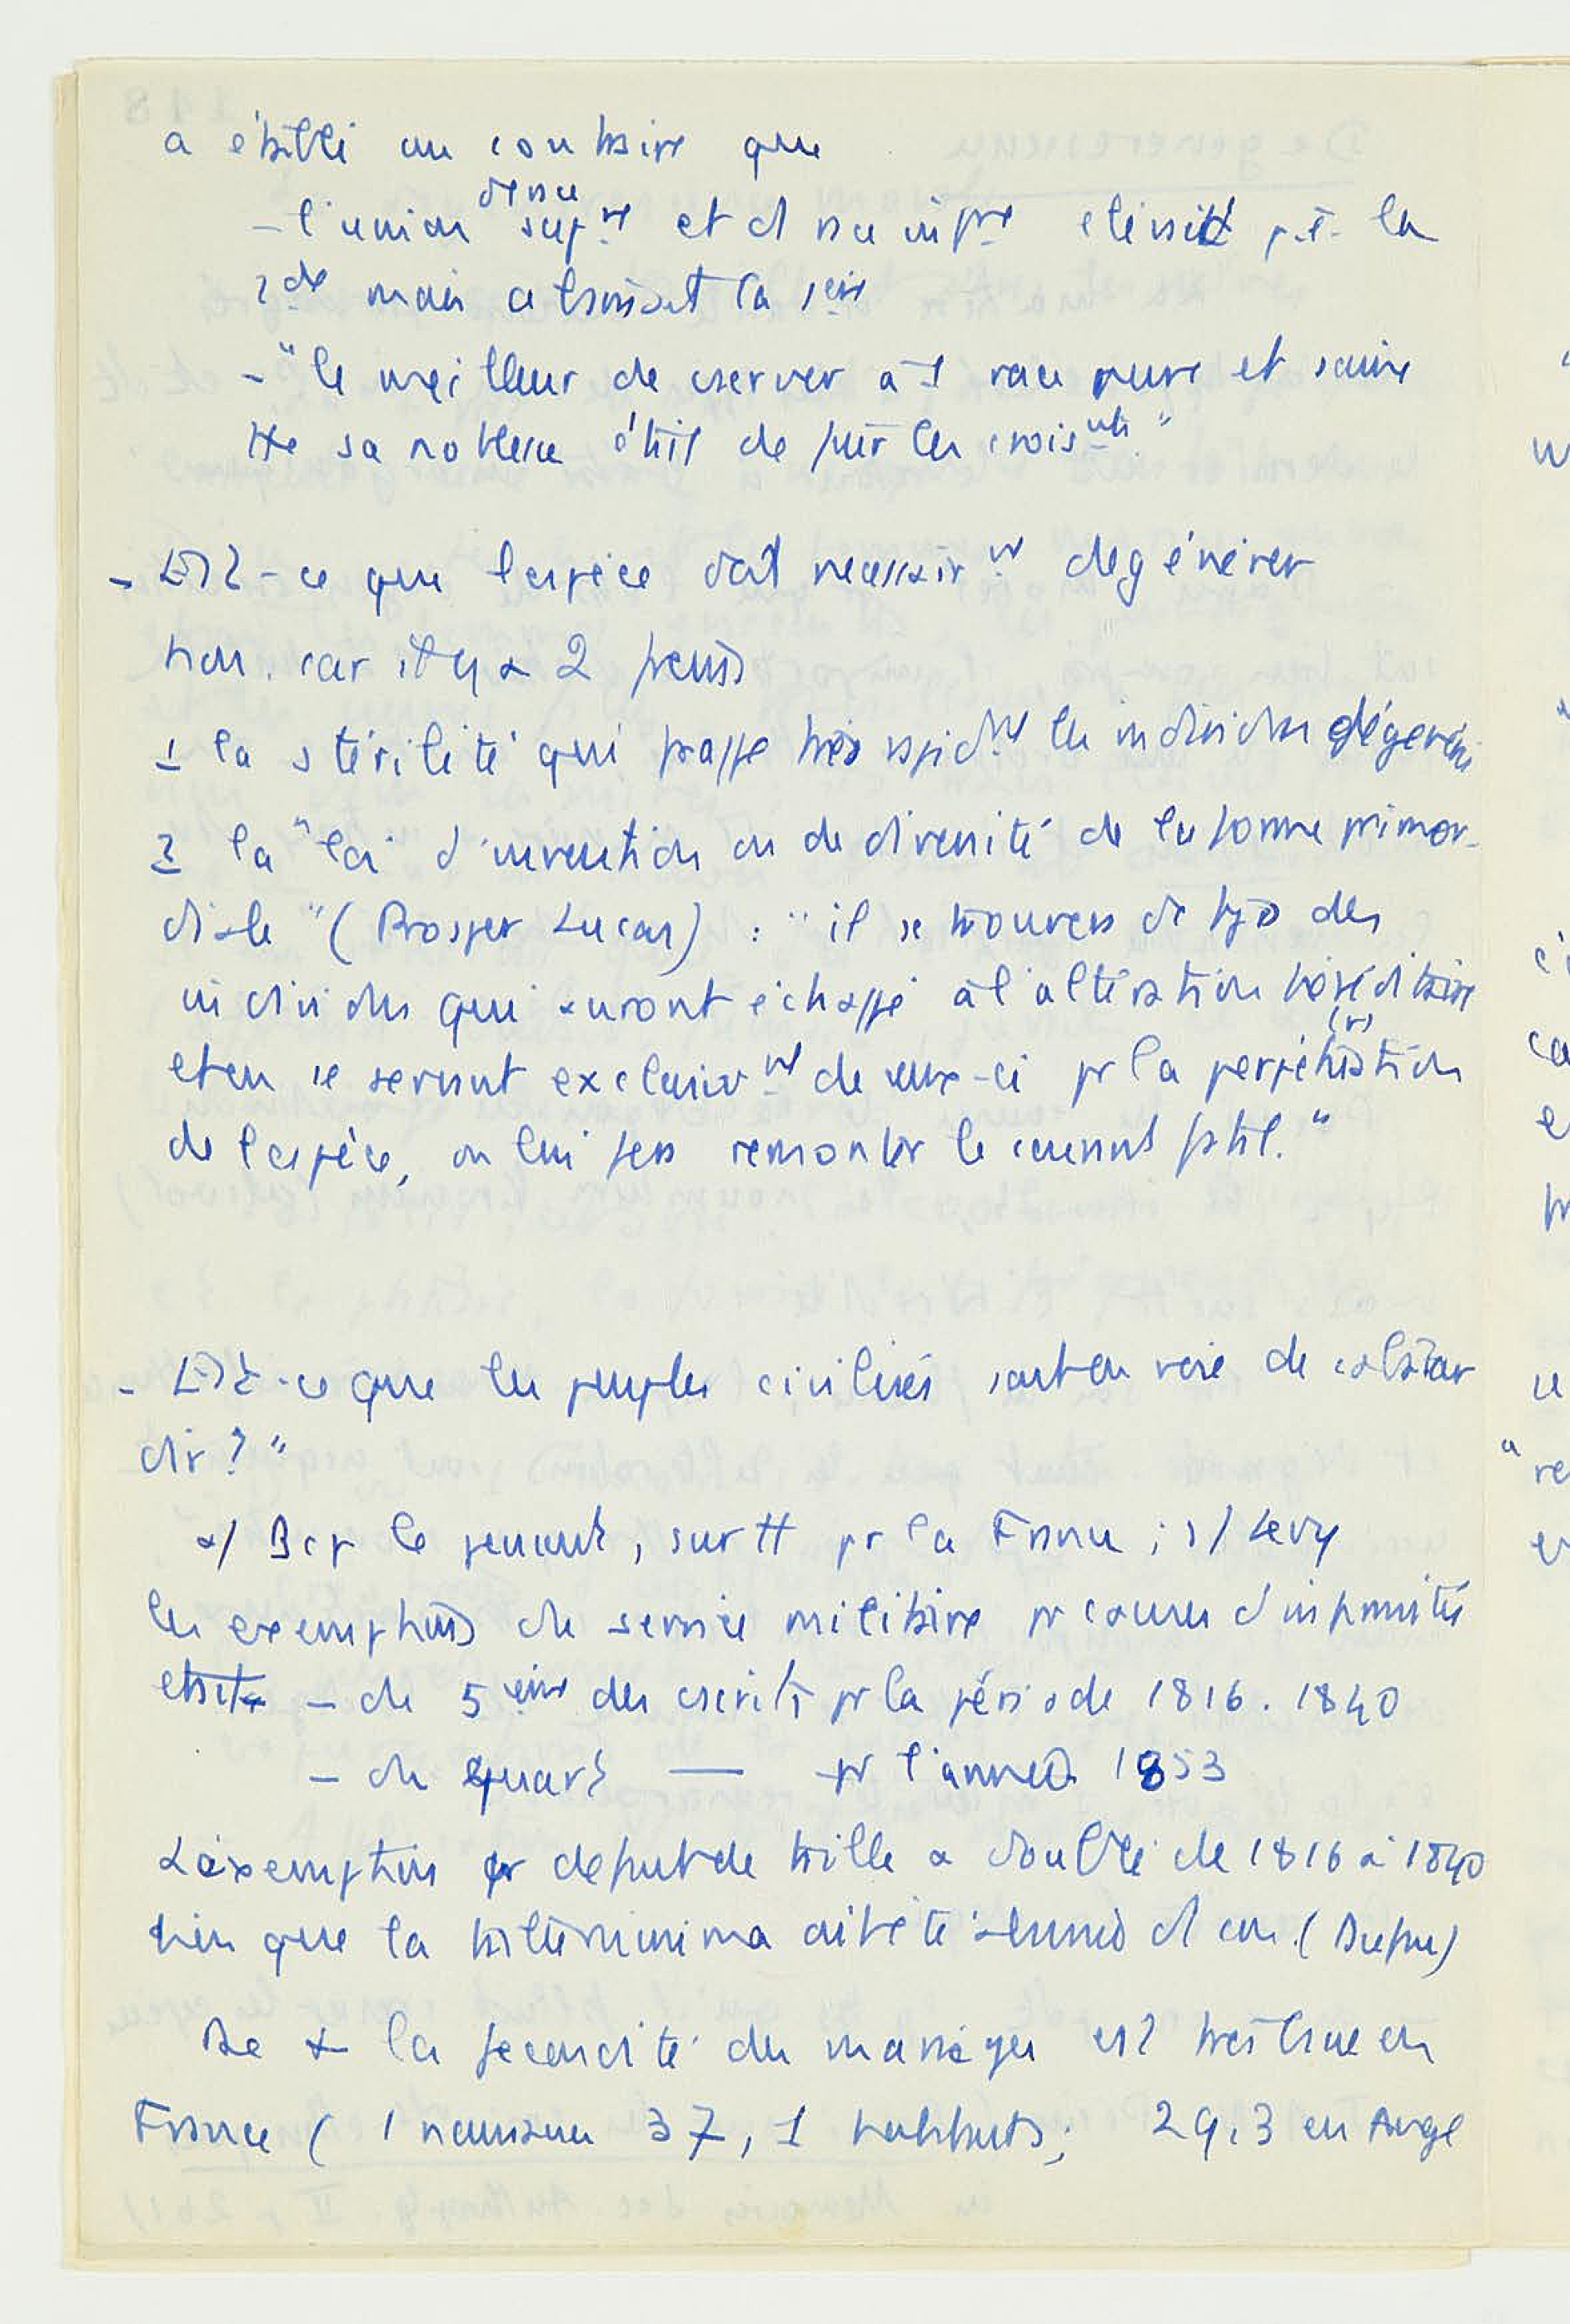 a établi au contraire que
- l'union de race supre et d race infre élevait p.ê. la
2de mais abaissait la 1ère
- "le meilleur de cserver à 1 race pure et saine
tte sa noblesse était de fuir les croismts"
- Est-ce que l'espèce doit nécessairmt dégénérer
non. car il y a 2 freins
1 la stérilité qui frappe très rapidmt les individus dégénérés
2 la "loi d'invention ou de diversité de la forme primor-
diale" (Prosper Lucas) : "il se trouvera de tjs des
individus qui auront échappé à l'altération héréditaire
et en se servant exclusivmt de ceux-ci pr la perpétration
de l'espèce, on lui fera remonter le courant fatal."
- Est-ce que les peuples civilisés sont en voie de s'abâtar
dir ?"
a/ Bcp le pensent, surtt pr la France ; s/ Levy
les exemptions du service militaire pr causes d'infirmités
- du 5ème des cscrits pr la période 1816.1840
- du quart — pr l'année 1853
L'exemption pr défaut de taille a doublé de 1816 à 1840
bien que la taille minima ait été
De + la fécondité des mariages est très basse en
France ( 1 naissance 37,1 habitants ; 29,3 en Angl